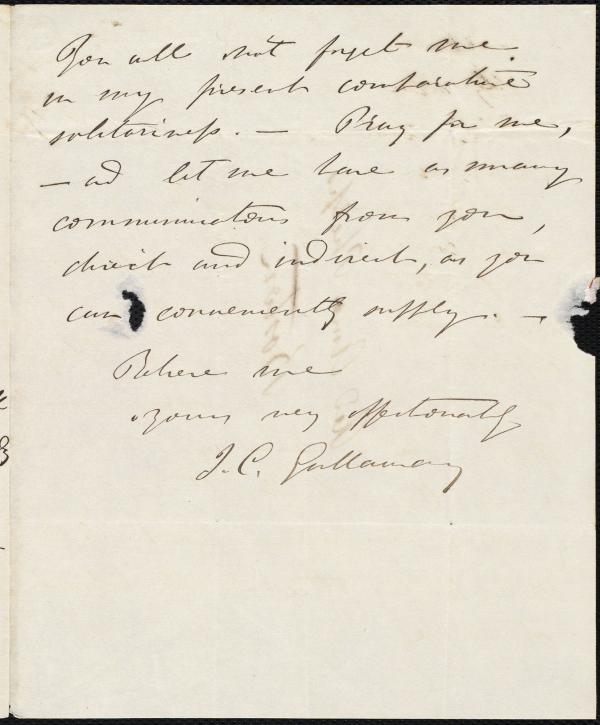 You all not forget me
in my present comparative
solitariness. — Pray for me,
— and let me have as many
communications from you,
direct and indirect, as you
can conveniently supply. —
Believe me
yours very affectionately
J. C. Gallaway